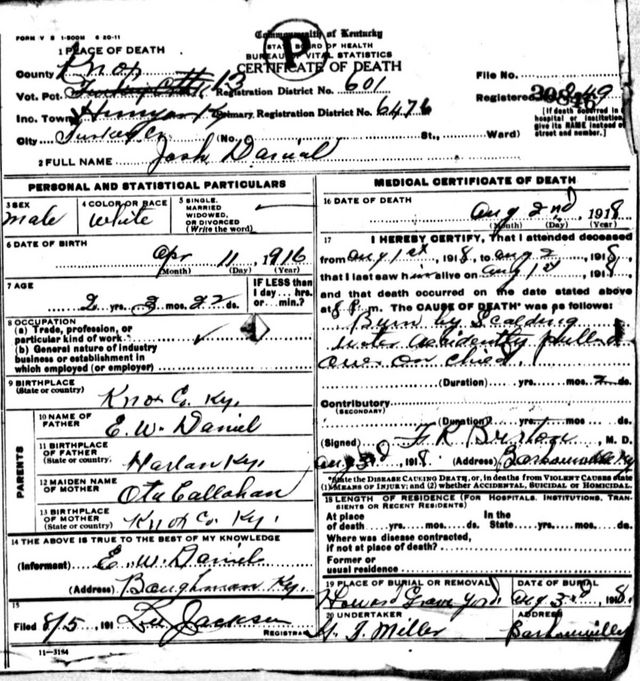 FORM V S 1-500M 6 20-11
Commonwealth of Kentucky
STATE BOARD OF HEALTH
BUREAU OF VITAL STATISTICS
CERTIFICATE OF DEATH
P
1 PLACE OF DEATH
County Knox
Vot. Pct. 13 Registration District No. 601
File No.
Inc. Town Primary Registration District No. 6476
Registered
[If death occurred in a hospital or institution, give its NAME instead of street and number.]
City Turkey Cr. (No. St., Ward)
2 FULL NAME Josh Daniel
PERSONAL AND STATISTICAL PARTICULARS
3 SEX male
4 COLOR OR RACE White
5 SINGLE, MARRIED WIDOWED, OR DIVORCED (Write the word)
6 DATE OF BIRTH
Apr 11, 1916
(Month) (Day) (Year)
7 AGE
2 yrs. 3 mos. 22 ds.
IF LESS than 1 day... hrs. or... min.?
8 OCCUPATION
(a) Trade, profession, or particular kind of work
(b) General nature of industry business or establishment in which employed (or employer)
9 BIRTHPLACE (State or country) Knox Co. Ky.
PARENTS
10 NAME OF FATHER E. W. Daniel
11 BIRTHPLACE OF FATHER (State or country) Harlan Ky.
12 MAIDEN NAME OF MOTHER Ota Callahan
13 BIRTHPLACE OF MOTHER (State or country) Knox Co. Ky.
14 THE ABOVE IS TRUE TO THE BEST OF MY KNOWLEDGE
(Informant) E. W. Daniel
(Address) Baughman Ky.
15
Filed 8/5, 191 Jackson
REGISTRAR
11-3184
MEDICAL CERTIFICATE OF DEATH
16 DATE OF DEATH
Aug 2nd, 1918
(Month) (Day) (Year)
17 I HEREBY CERTIFY, That I attended deceased
from Aug 1st, 1918, to Aug 2, 1918,
that I last saw him alive on Aug 1st, 1918,
and that death occurred on the date stated above
at 8 P. m. The CAUSE OF DEATH* was as follows:
Burn by Scalding
water accidently pulled
over on child.
(Duration) yrs. mos. 2 ds.
Contributory
(SECONDARY)
(Duration) yrs. mos. ds.
(Signed) M. D.
Aug 3d, 1918. (Address) Barbourville Ky
*State the DISEASE CAUSING DEATH, or, in deaths from VIOLENT CAUSES state (1) MEANS OF INJURY; and (2) whether ACCIDENTAL, SUICIDAL or HOMICIDAL.
18 LENGTH OF RESIDENCE (FOR HOSPITALS, INSTITUTIONS, TRANSIENTS OR RECENT RESIDENTS)
At place of death yrs. mos. ds. In the State yrs. mos. ds.
Where was disease contracted, if not at place of death?
Former or usual residence
19 PLACE OF BURIAL OR REMOVAL
Howard Grave Yard
DATE OF BURIAL
Aug 3d, 1918
20 UNDERTAKER
Miller
ADDRESS
Barbourville